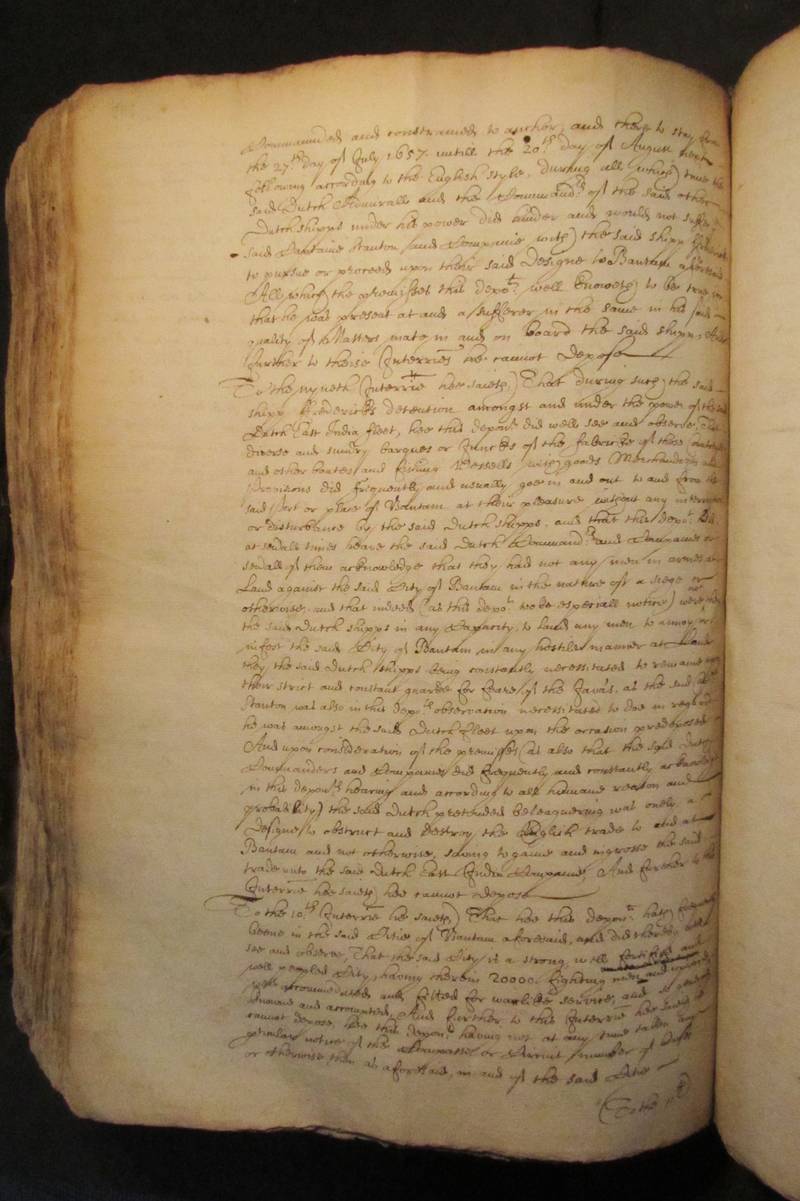 Commaunded and constrained to anchor, and there to stay from
the 27th day of July 1657 untill the 20th day of August next
following according to the English style, during all which time the
said Dutch Admirall and the Command:rs of the said other
Dutch shipps under his power did hinder and would not suffer the
said Captaine Stanton and Companie with the said shipp Frederick
to pursue or proceed upon their said designe to Bantam aforesaid
All which the premisses this depo:t well knoweth to be true in
that he was present at and a sufferer in the same in his said
quality of Masters mate in and on board the said shipp, And
further to theise Interries he cannot depose
To the nyneth Interrie hee saieth That during such the said
shipp Fredericks detention amongst and under the power of the said
Dutch East India fleet, hee this depon:t did well see and observe, That
diverse and sundry barques or Juncks of the fabricke of those
and other boates and fishing vessells with goods Merchandizes and
provisions did frequently and usually goe in and out to and from the
said Port or place of Bantam at their pleasure without any interruption
or disturbance by the said Dutch shipps, and that this depo:t did
at severall times heare the said Dutch Command:rs and Companies or
severall of them acknowledge that they had not any men in armes at
Land against the said City of Bantam in the nature of a siege or
otherwise, and that indeed (as this depo:t tooke especiall notice) were not
the said Dutch shipps in any Capacity to land any men to annoy or
infest the said City of Bantam in any hostile manner at Land
they the said Dutch shipps being constantly necessitated to remaine upon
their strict and constant guarde for feare of the Java's, as the said Capt:
Stanton was also in this depo:ts observation necessitated to doe in regard
he was amongst the said Dutch fleet upon the occasion predeposed
And upon consideration of the premisses (as also that the said Dutch
Commanders and Companies did frequently and constantly acknowledge
in this depon:ts hearing and according to all humane reason and
probability) the said Dutch pretended beleaguering was onely a
designe to obstruct and destroy the English trade to and at
Bantam and not otherwise, saving to gaine and ingrosse the said
trade unto the said Dutch East India Companie, And further to this
Interrie hee saieth hee cannot depose
To the 10:th Interrie he saieth That hee this depon:t hath frequently
beene in the said Citie of Bantam aforesaid, and did thereby well
see and observe, That the said City is a strong, well fortified and
well peopled City, having therein 20000 fighting men and upwards
well accommodated and fitted for warlike service, and so generally
knowne and accompted, And further to this Interrie hee saieth he
cannot depose hee this depon:t having not at any time taken any
peticular notice of the or Circuit number of
or otherwise then as aforesaid, in and of the said Citie
To the 11:th